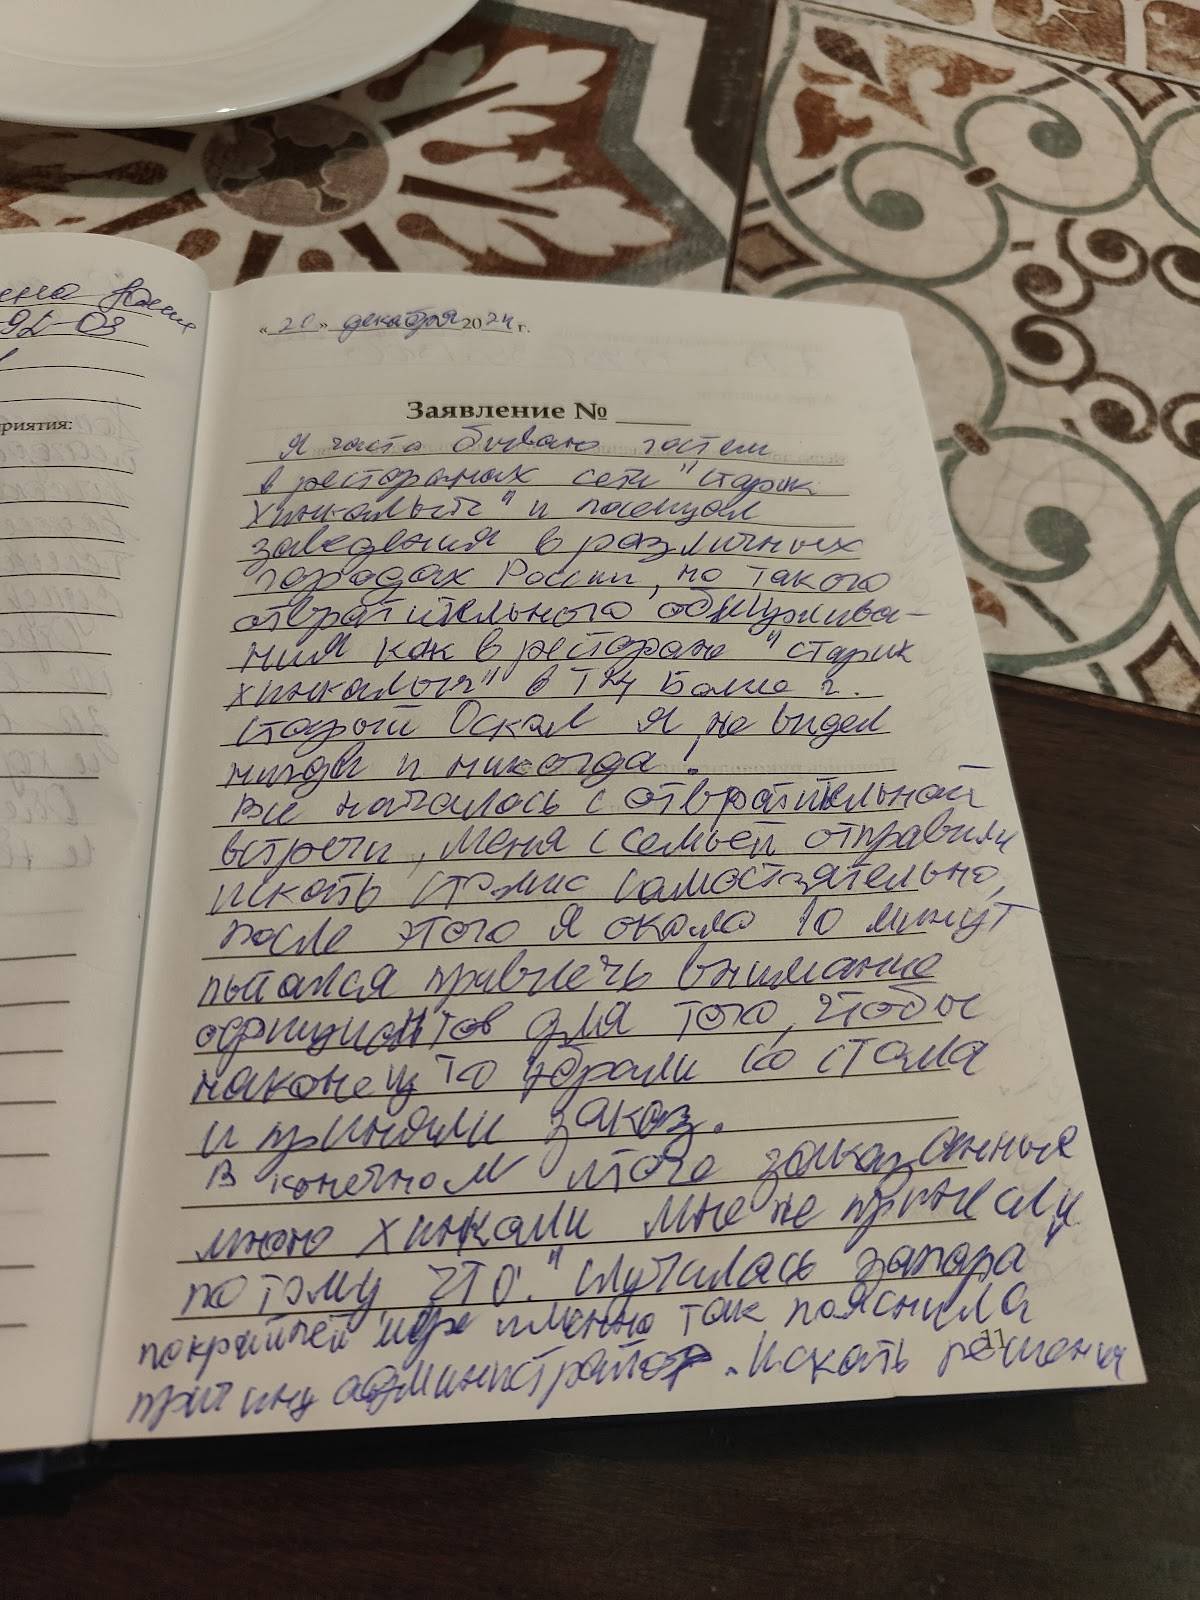 92-03
приятия:
«20» декабря 2024 г.
Заявление №
Я часто бываю гостем
в ресторанах сети "Старик
Хинкалыч" и посещал
заведения в различных
городах России, но такого
отвратительного обслужива-
ния как в ресторане "Старик
Хинкалыч" в ТРЦ Боше г.
Старый Оскол я не видел
нигде и никогда!
Все началось с отвратительной
встречи, меня с семьей отправили
искать столик самостоятельно,
после этого я около 10 минут
пытался привлечь внимание
официантов для того, чтобы
наконец то убрали со стола
и приняли заказ.
В конечном итоге заказанные
мною хинкали мне не принесли
потому что: "случилась запара"
по крайней мере именно так пояснила
причину администратор. Искать решения
11